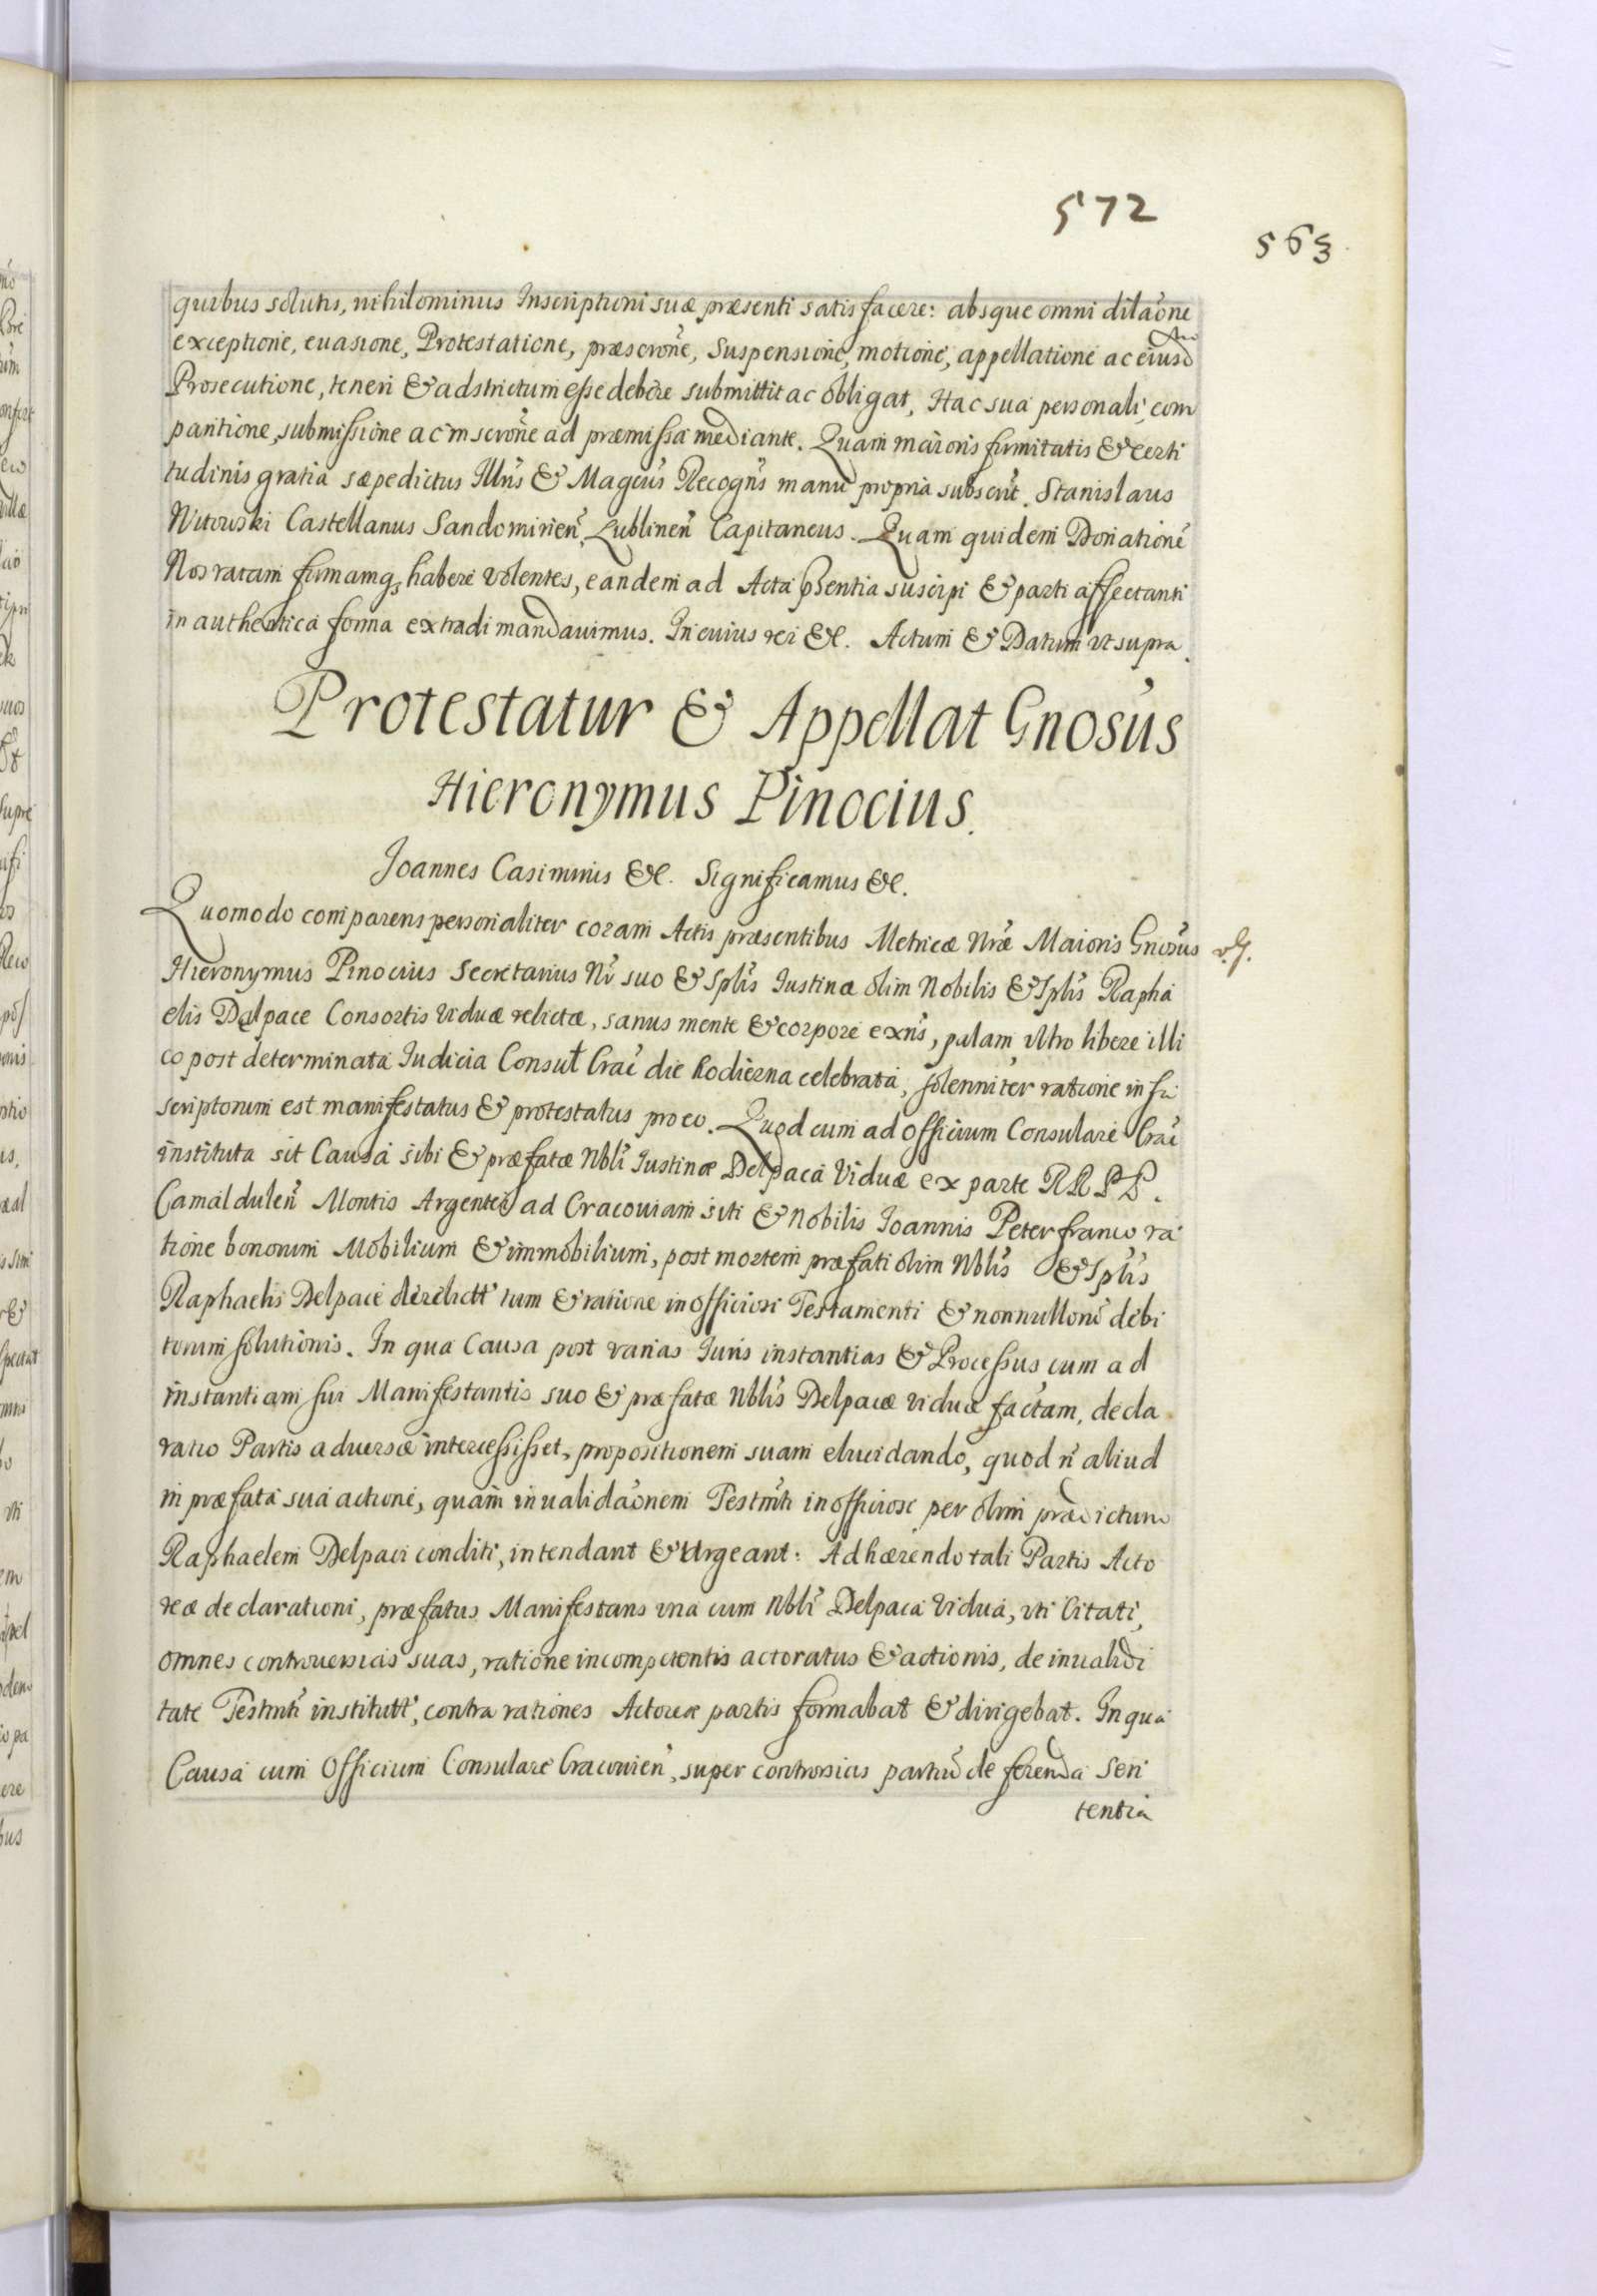 572
563
quibus solutis, nihilominus Inscriptioni suæ præsenti satisfacere: absque omni dilao͂ne
exceptione, euasione, Protestatione, præscro͂ne, suspensione, motione, appellatione ac eiusd
Prosecutione, teneri & adstrictum esse debere submittit ac obligat, Hac sua personali, com
paritione, submissione ac inscro͂ne ad præmissa mediante. Quam maioris firmitatis & certi
tudinis gratia sæpedictus Illris & Magcus Recogns manu propria subscrit. Stanislaus
Witowski Castellanus Sandomirien͂, Lublinen͂ Capitaneus. Quam quidem Donatione͂
Nos ratam firmamq3 habere volentes, eandem ad Acta pñsentia suscipi & parti affectanti
in authentica forma extradi mandauimus. In cuius rei &c. Actum & Datum vt supra.
Protestatur & Appellat Gnosus
Hieronymus Pinocius.
Joannes Casimirus &c. Significamus &c.
Quomodo comparens personaliter coram Actis præsentibus Metricæ Nræ Maioris Gnosus
Hieronymus Pinocius Secretarius Nr suo & Splis Iustinæ olim Nobilis & Splis Rapha
elis Delpace Consortis viduæ relictæ, sanus mente & corpore exns, palam vltro libere illi
co post determinata Iudicia Consul Crac die hodierna celebrata, solenniter ratione infra
scriptorum est manifestatus & protestatus pro eo. Quod cum ad officium Consulare Crac
instituta sit Causa sibi & præfatæ Nbli Iustinæ Delpaca Viduæ ex parte RR PP.
Camaldulen͂ Montis Argentei ad Cracouiam siti & Nobilis Ioannis Peterfranco ra
tione bonorum Mobilium & immobilium, post mortem præfati olim Nblis & Splis
Raphaelis Delpace derelictt tum & ratione inofficiosi Testamenti & nonnulloru͂ debi
torum solutionis. In qua Causa post varias Iuris instantias & Processus cum ad
instantiam sui Manifestantis suo & præfatæ Nblis Delpacæ viduæ factam, decla
ratio Partis aduersæ intercessisset, propositionem suam elucidando, quod n͂ aliud
in præfata sua actione, quam inualidao͂nem Testmti inofficiose per olim prædictum
Raphaelem Delpaci conditi, intendant & Urgeant: Adhærendo tali Partis Acto
reæ declarationi, præfatus Manifestans vna cum Nbli Delpaca Vidua, vti Citati,
omnes controuersias suas, ratione incompetentis actoratus & actionis, de inualidi
tate Testmti institutt, contra rationes Actoreæ partis formabat & dirigebat. In qua
Causa cum Officium Consulare Cracouien͂, super controrsias partiu͂ de ferenda Sen
tentia